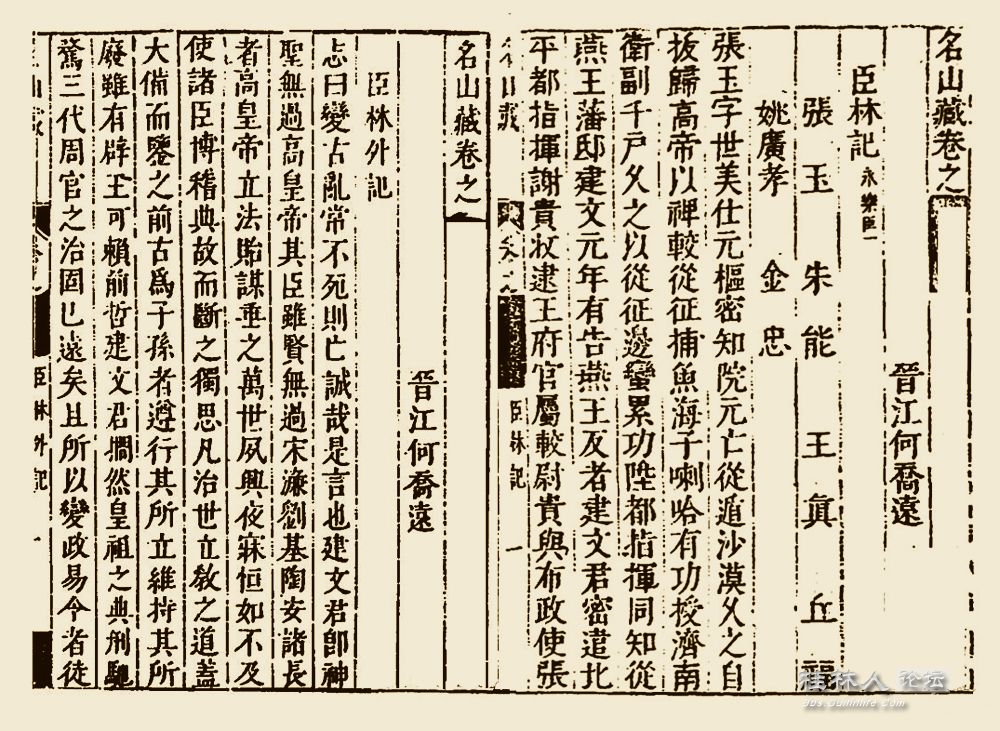 名山藏卷之
晉江何喬遠
臣林記 永樂臣一
張玉 朱能 王眞 丘福
姚廣孝 金忠
張玉字世美仕元樞密知院元亡從遁沙漠久之自
拔歸高帝以裨較從征捕魚海子喇哈有功授濟南
衛副千戶久之以從征邊蠻累功陞都指揮同知從
燕王藩邸建文元年有告燕王反者建文君密遣北
平都指揮謝貴收逮王府官屬較尉貴與布政使張
名山藏 卷之 臣林記 一
名山藏卷之
晉江何喬遠
臣林外記
志曰變古亂常不死則亡誠哉是言也建文君卽神
聖無過高皇帝其臣雖賢無過宋濂劉基陶安諸長
者高皇帝立法貽謀垂之萬世夙興夜寐恒如不及
使諸臣博稽典故而斷之獨思凡治世立教之道蓋
大備而鑒之前古爲子孫者遵行其所立維持其所
廢雖有辟王可賴前哲建文君撊然皇祖之典刑馳
騖三代周官之治固已遠矣且所以變政易令者徒
臣林外記 一
桂林人 论坛
bbs.Guilinlife.com